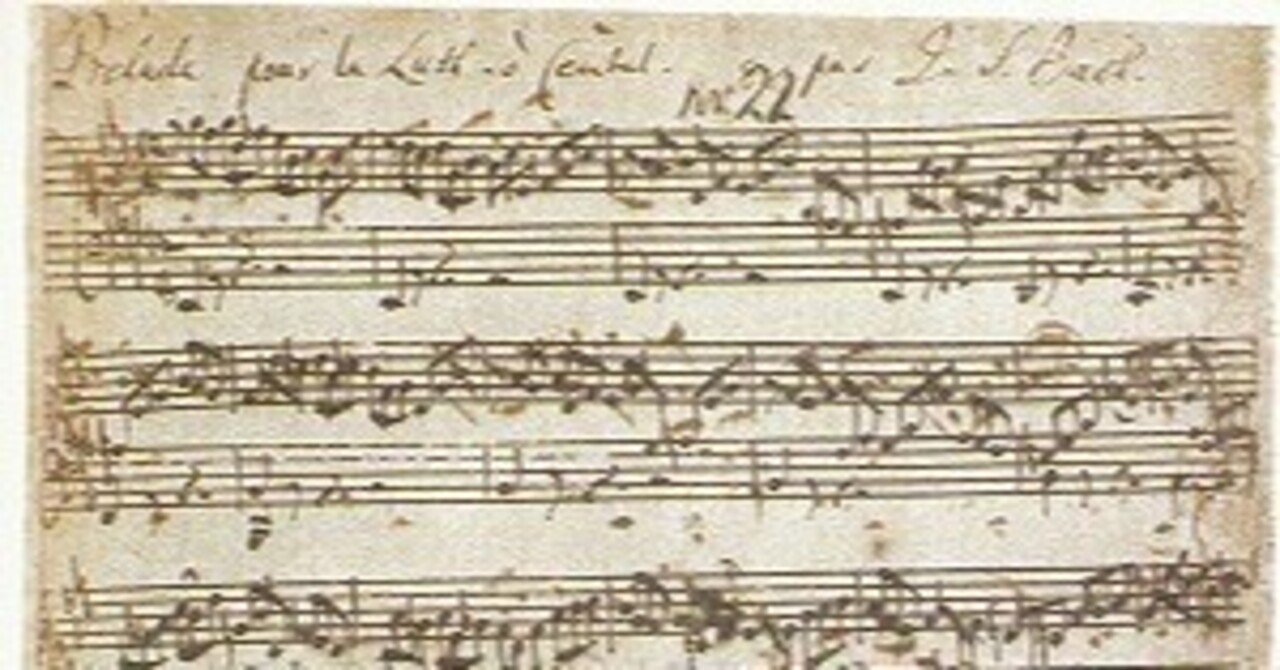 Prelude pour la Luth. ò Cèmbal. par J. S. Bach.
no: 22